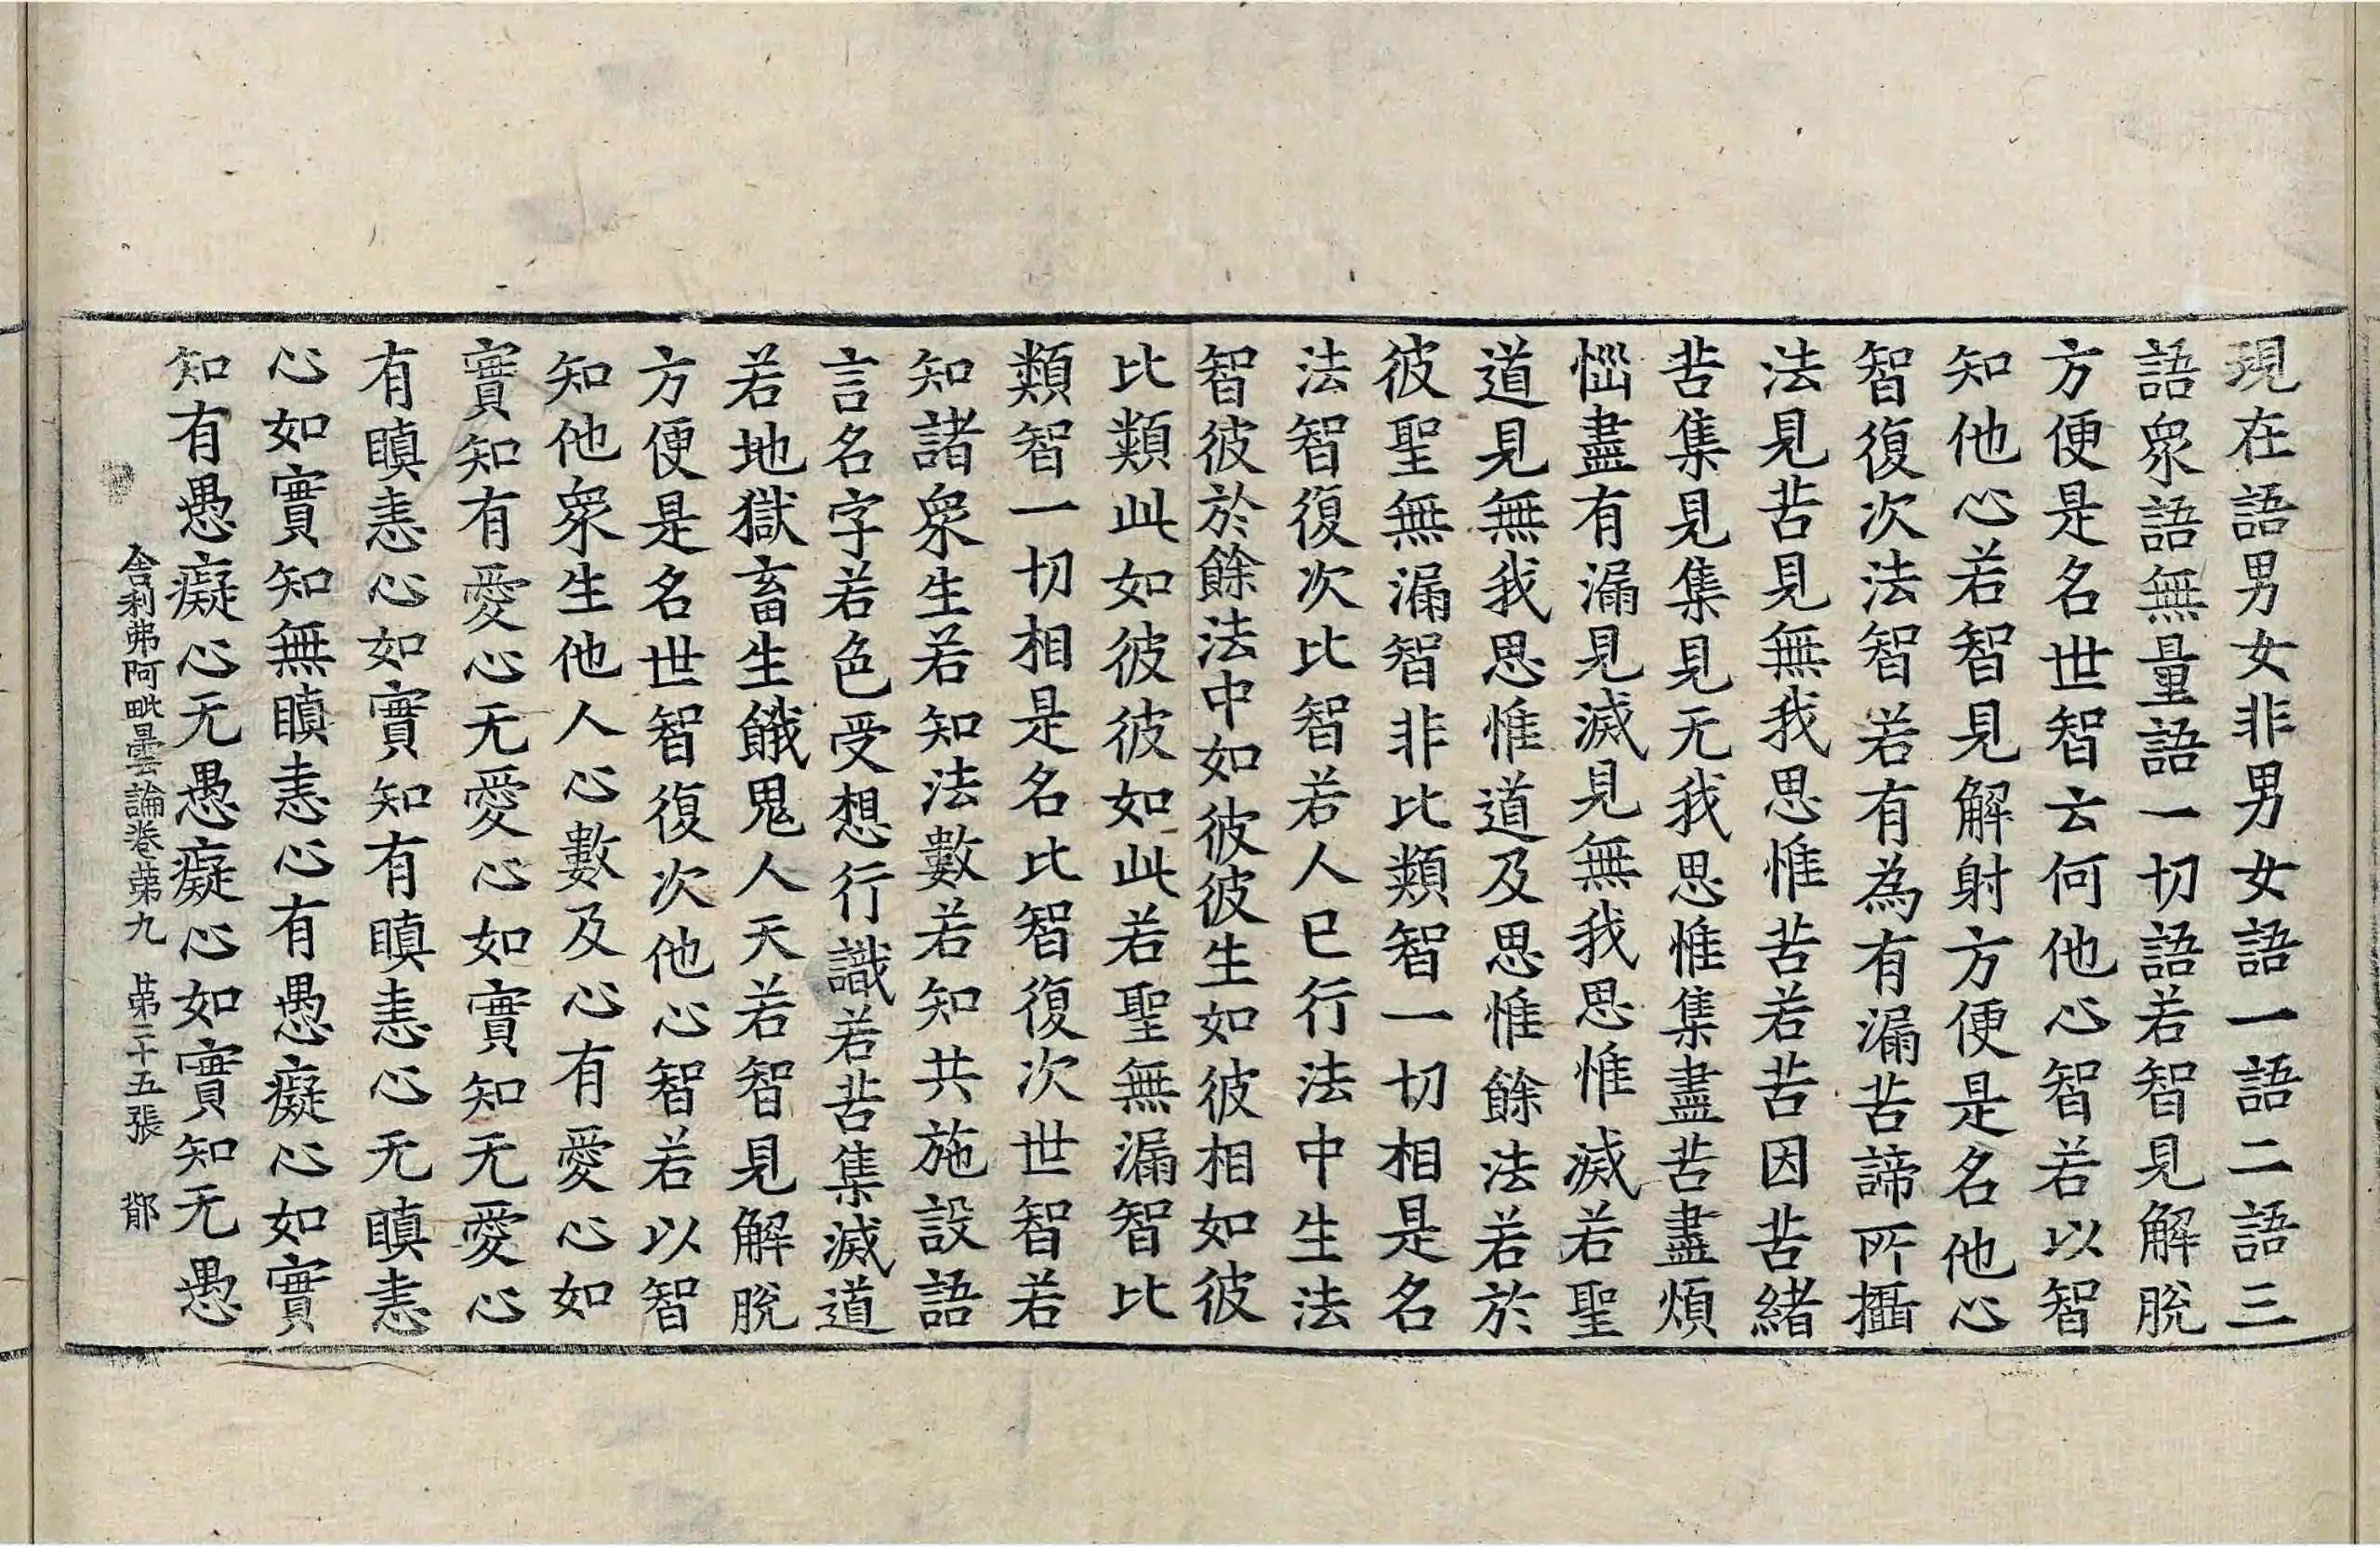 現在語男女非男女語一語二語三
語衆語無量語一切語若智見解脫
方便是名世智云何他心智若以智
知他心若智見解射方便是名他心
智復次法智若有為有漏苦諦所攝
法見苦見無我思惟苦若苦因苦緒
苦集見集見无我思惟集盡苦盡煩
惱盡有漏見滅見無我思惟滅若聖
道見無我思惟道及思惟餘法若於
彼聖無漏智非比類智一切相是名
法智復次比智若人已行法中生法
智彼於餘法中如彼彼生如彼相如彼
比類此如彼彼如此若聖無漏智比
類智一切相是名比智復次世智若
知諸衆生若知法數若知共施設語
言名字若色受想行識若苦集滅道
若地獄畜生餓鬼人天若智見解脫
方便是名世智復次他心智若以智
知他衆生他人心數及心有愛心如
實知有愛心无愛心如實知无愛心
有瞋恚心如實知有瞋恚心无瞋恚
心如實知無瞋恚心有愚癡心如實
知有愚癡心无愚癡心如實知无愚
舍利弗阿毗曇論卷苐九 苐三十五張 䣛